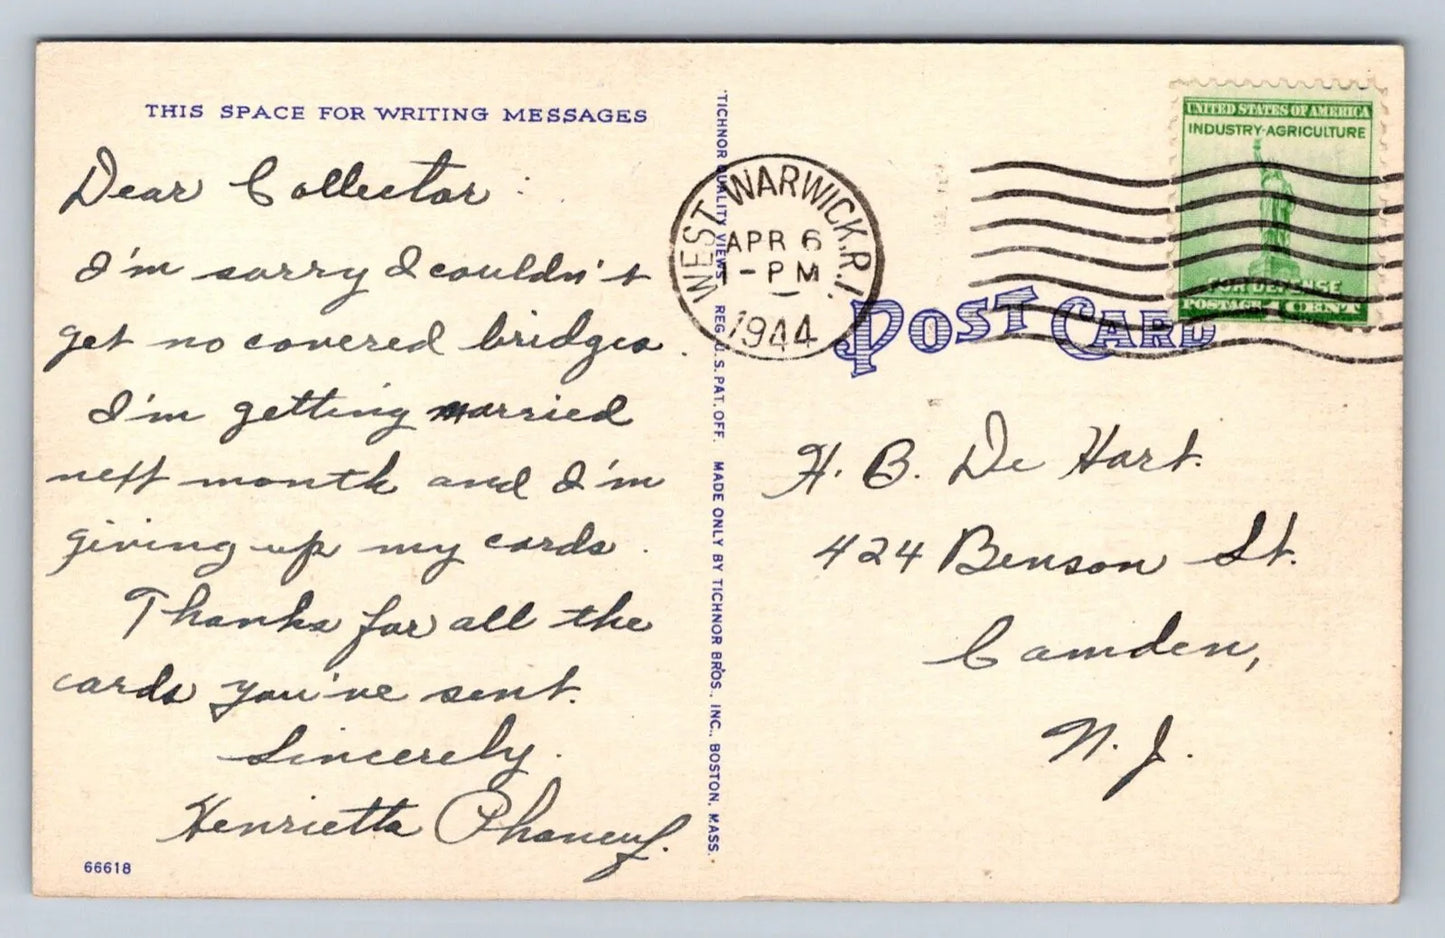 THIS SPACE FOR WRITING MESSAGES
Dear Collector :
I'm sorry I couldn't
get no covered bridges.
I'm getting married
next month and I'm
giving up my cards.
Thanks for all the
cards you've sent.
Sincerely.
Henrietta Phaneuf.
66618
TICHNOR QUALITY VIEWS REG. U.S. PAT. OFF. MADE ONLY BY TICHNOR BROS., INC., BOSTON, MASS.
WEST WARWICK, R.I.
APR 6
- PM
1944
UNITED STATES OF AMERICA
INDUSTRY-AGRICULTURE
FOR DEFENSE
POSTAGE 1 CENT
POST CARD
H. B. De Hart.
424 Benson St.
Camden,
N. J.